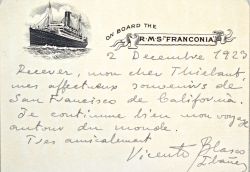 ON BOARD THE
R·M·S "FRANCONIA"
2 Decembre 1923
Recever, mon cher Thiebaut,
mes affectueux souvenirs de
San Francisco de California.
Je continue bien mon voyage
autour du monde.
Tres amicalement
Vicente Blasco
Ibáñez